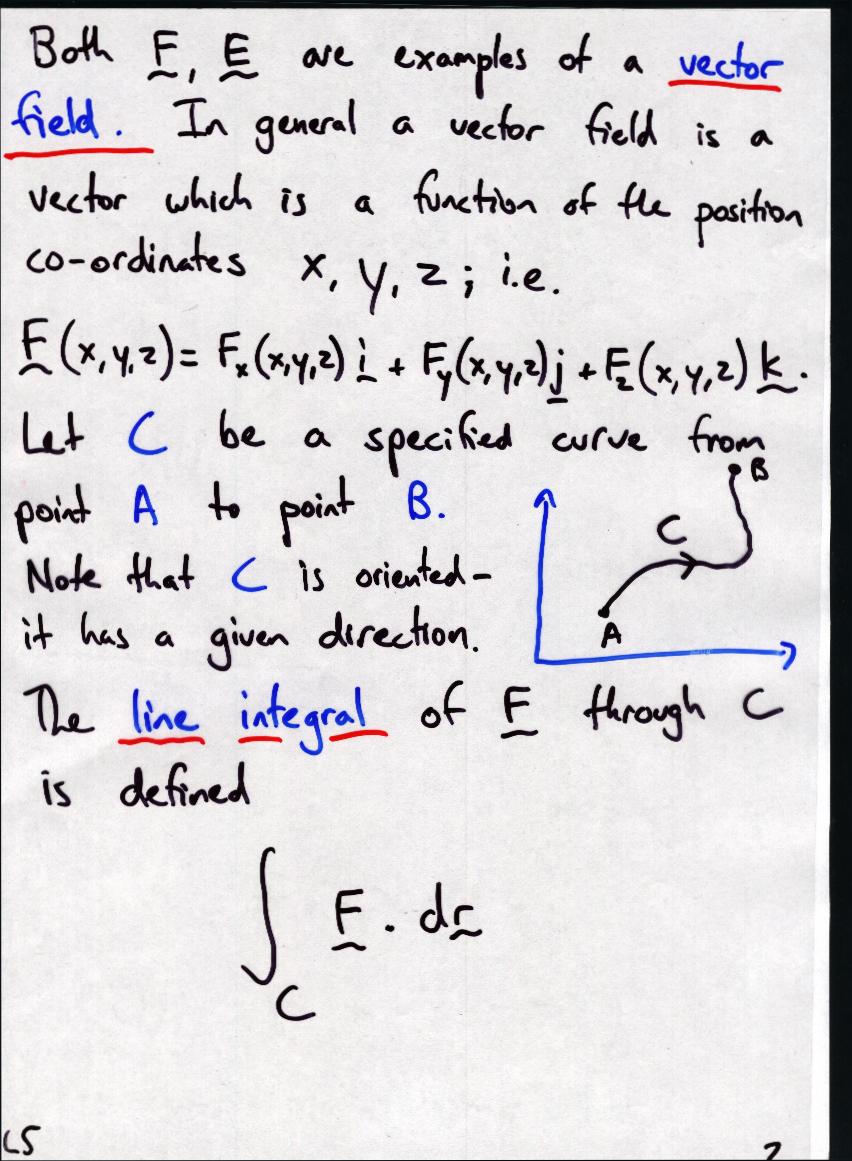 Both F, E are examples of a vector
field. In general a vector field is a
vector which is a function of the position
co-ordinates x, y, z; i.e.
F(x,y,z) = Fx(x,y,z) i + Fy(x,y,z) j + Fz(x,y,z) k.
Let C be a specified curve from
point A to point B.
Note that C is oriented-
it has a given direction.
B
C
A
The line integral of F through C
is defined
∫C F . dr